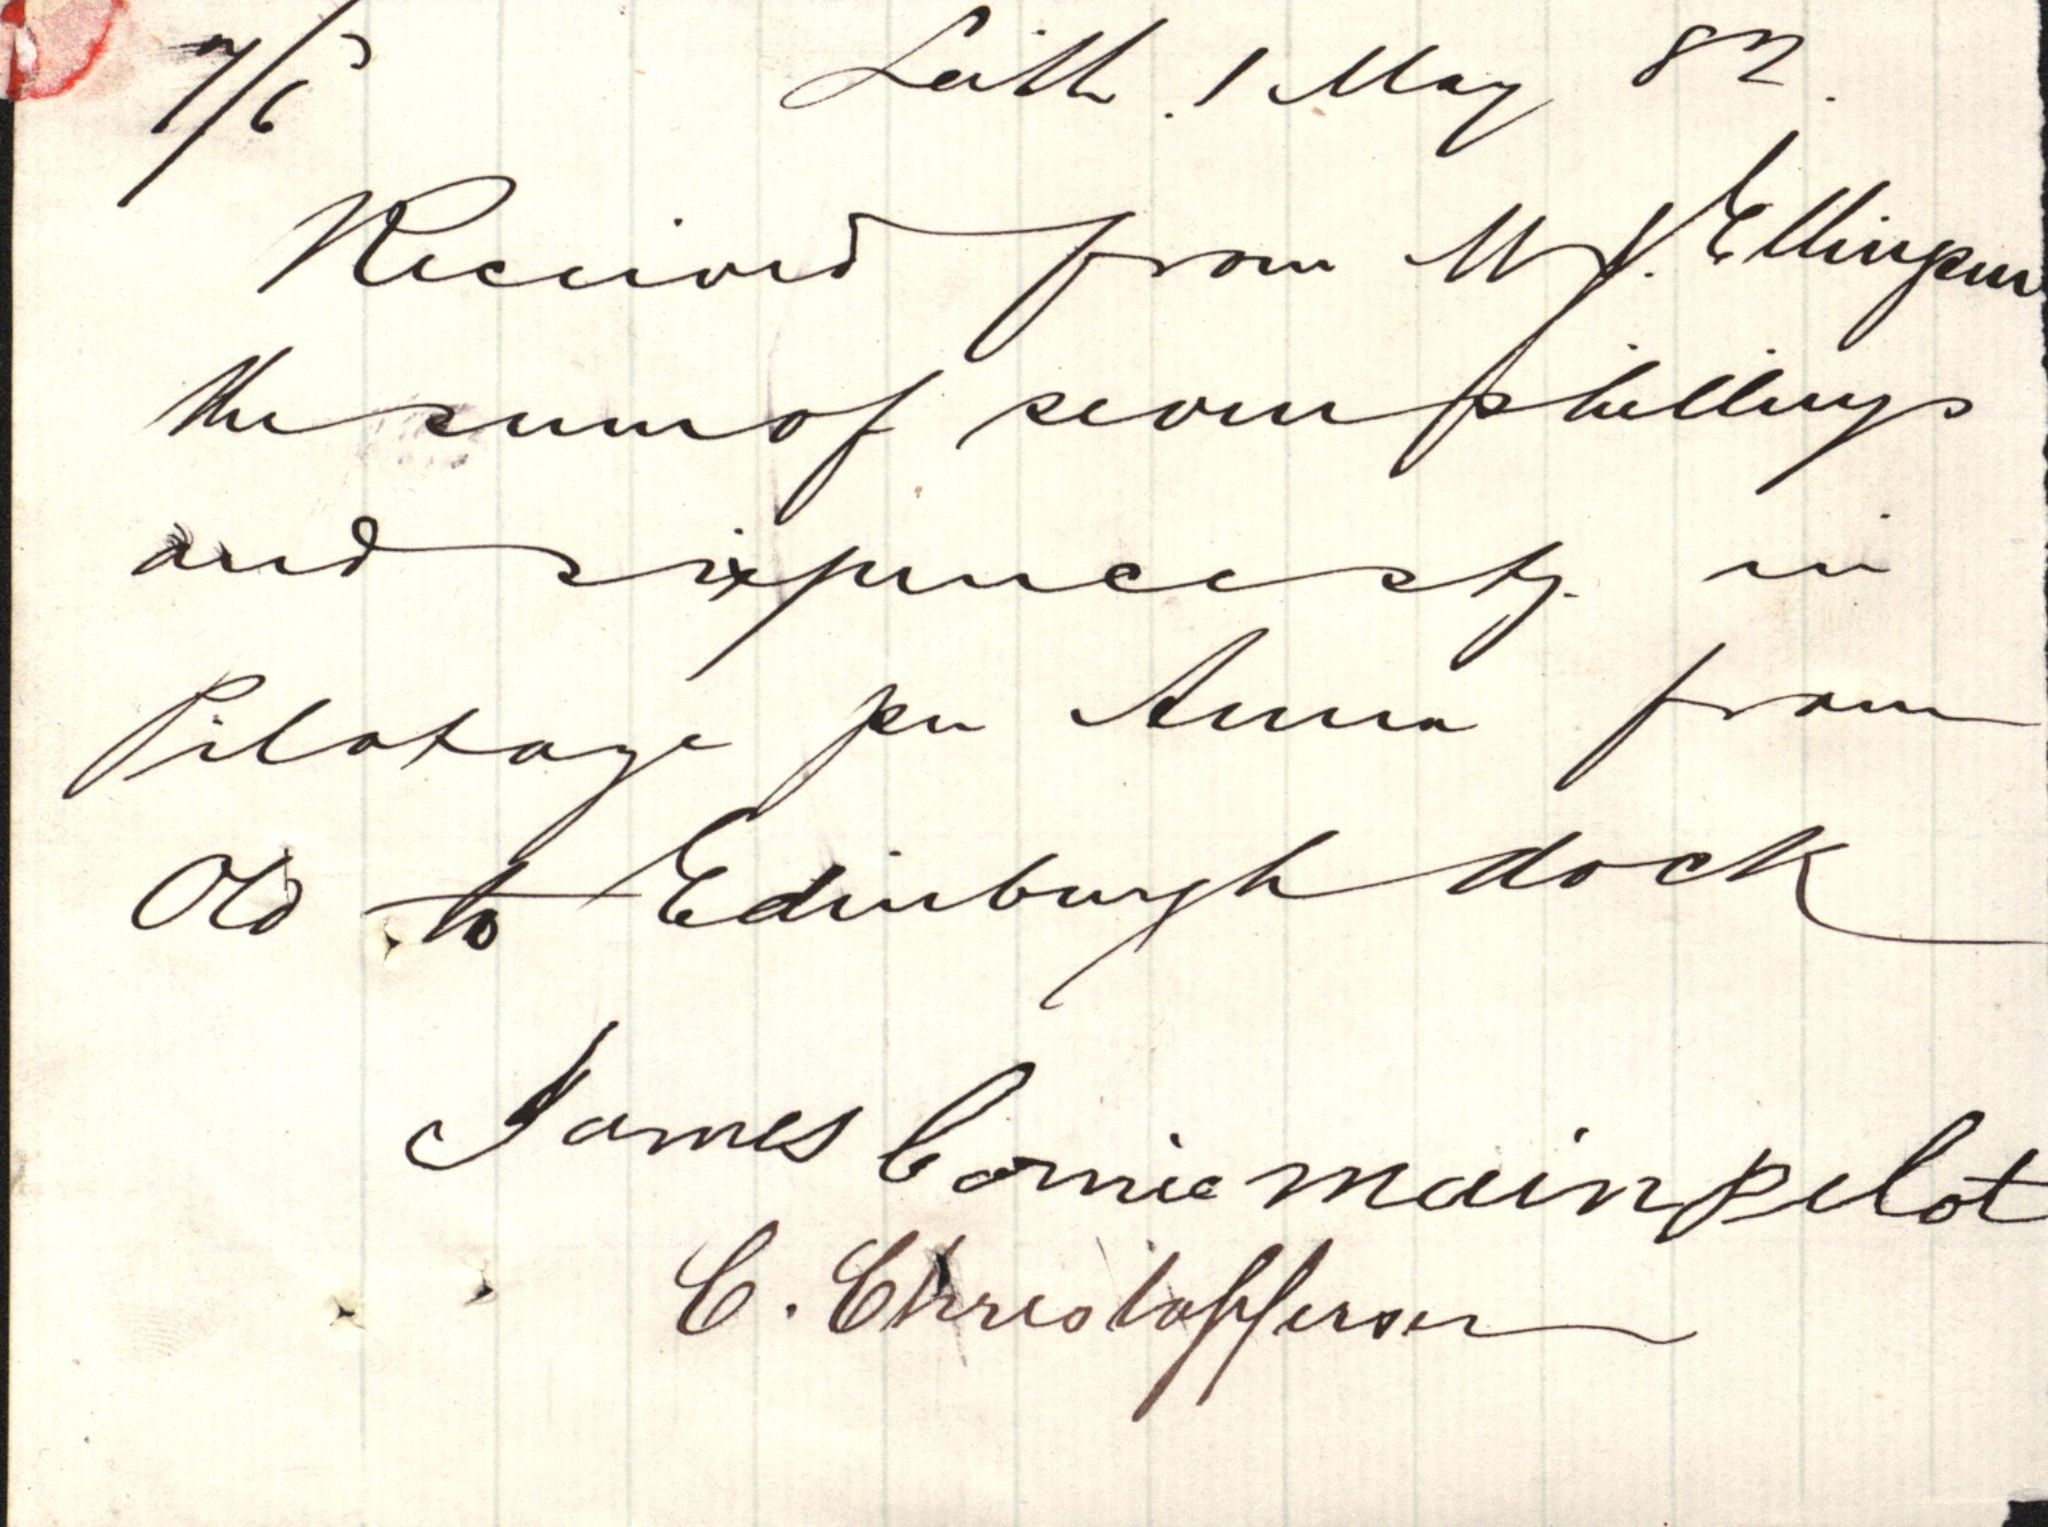 7/6 Leith. 1 May 82.
Received from Mr J. Ellingsen
the sum of seven shillings
and sixpence stg. in
Pilotage per Anna from
Old to Edinburgh dock
James main pilot
C. Christoffersen